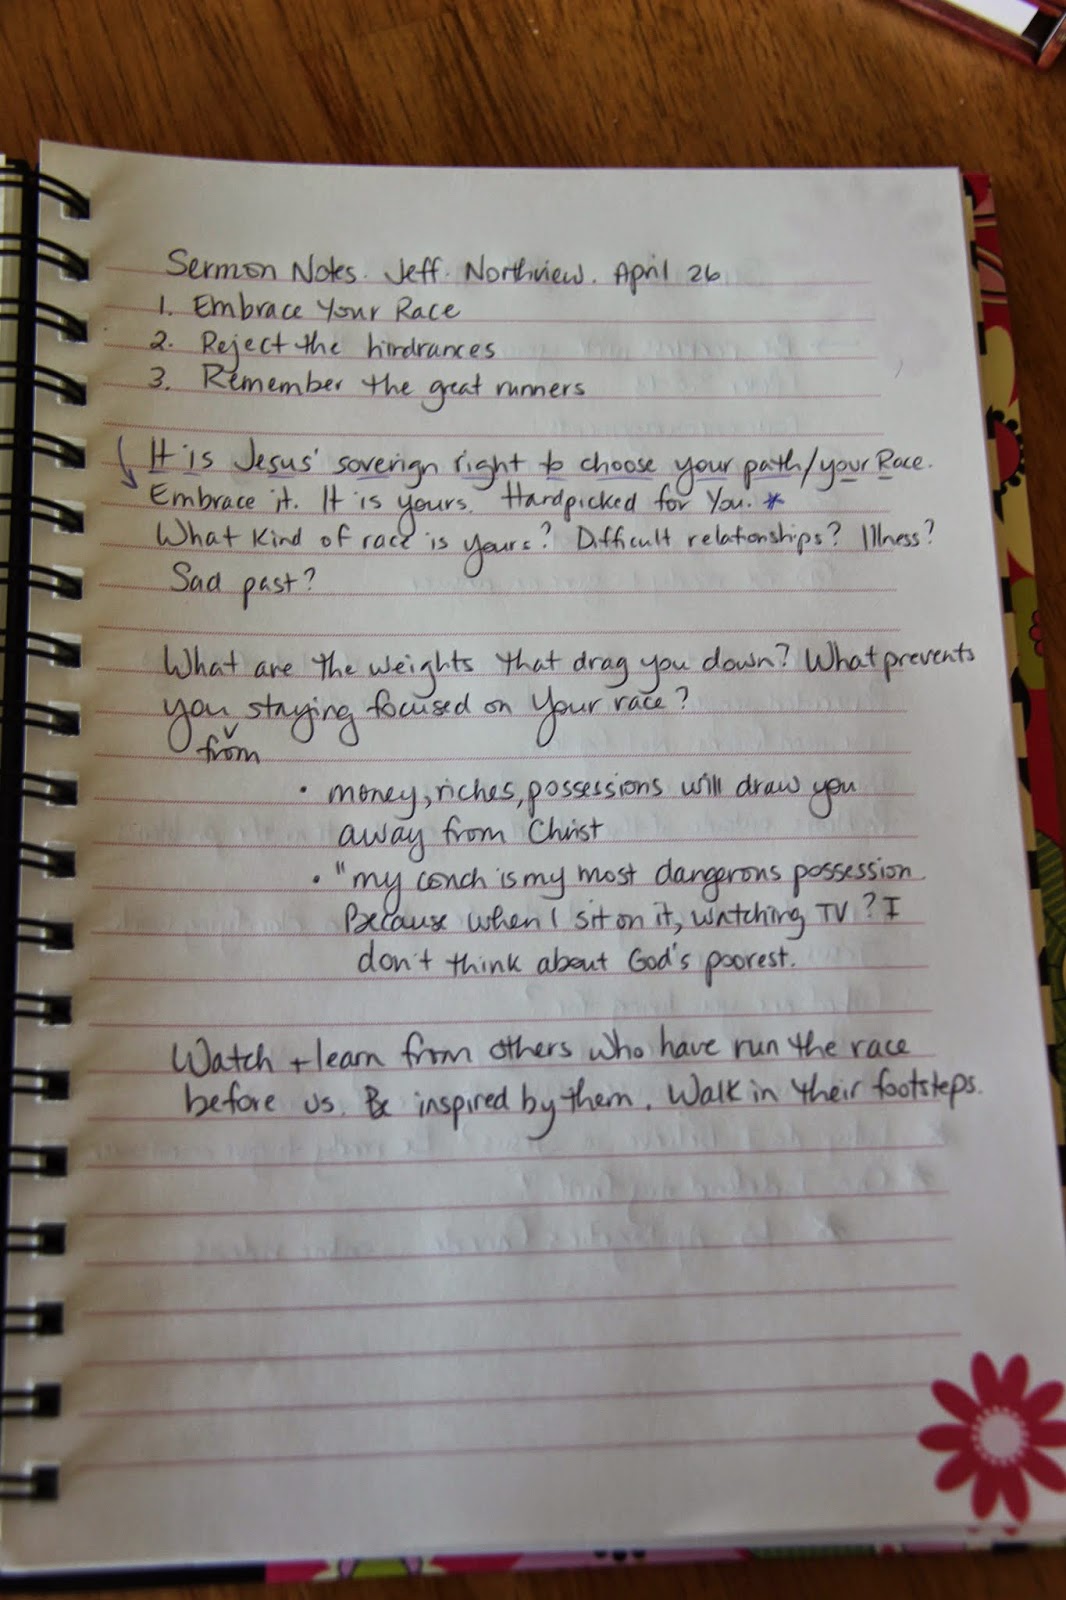 Sermon Notes. Jeff. Northview. April 26
1. Embrace Your Race
2. Reject the hindrances
3. Remember the great runners
It is Jesus' soverign right to choose your path/your Race.
Embrace it. It is yours. Handpicked for You. *
What kind of race is yours? Difficult relationships? Illness?
Sad past?
What are the weights that drag you down? What prevents
you staying focused on your race?
from
• money, riches, possessions will draw you
away from Christ
• "my couch is my most dangerous possession.
Because when I sit on it, watching TV? I
don't think about God's poorest.
Watch + learn from others who have run the race
before us. Be inspired by them. Walk in their footsteps.